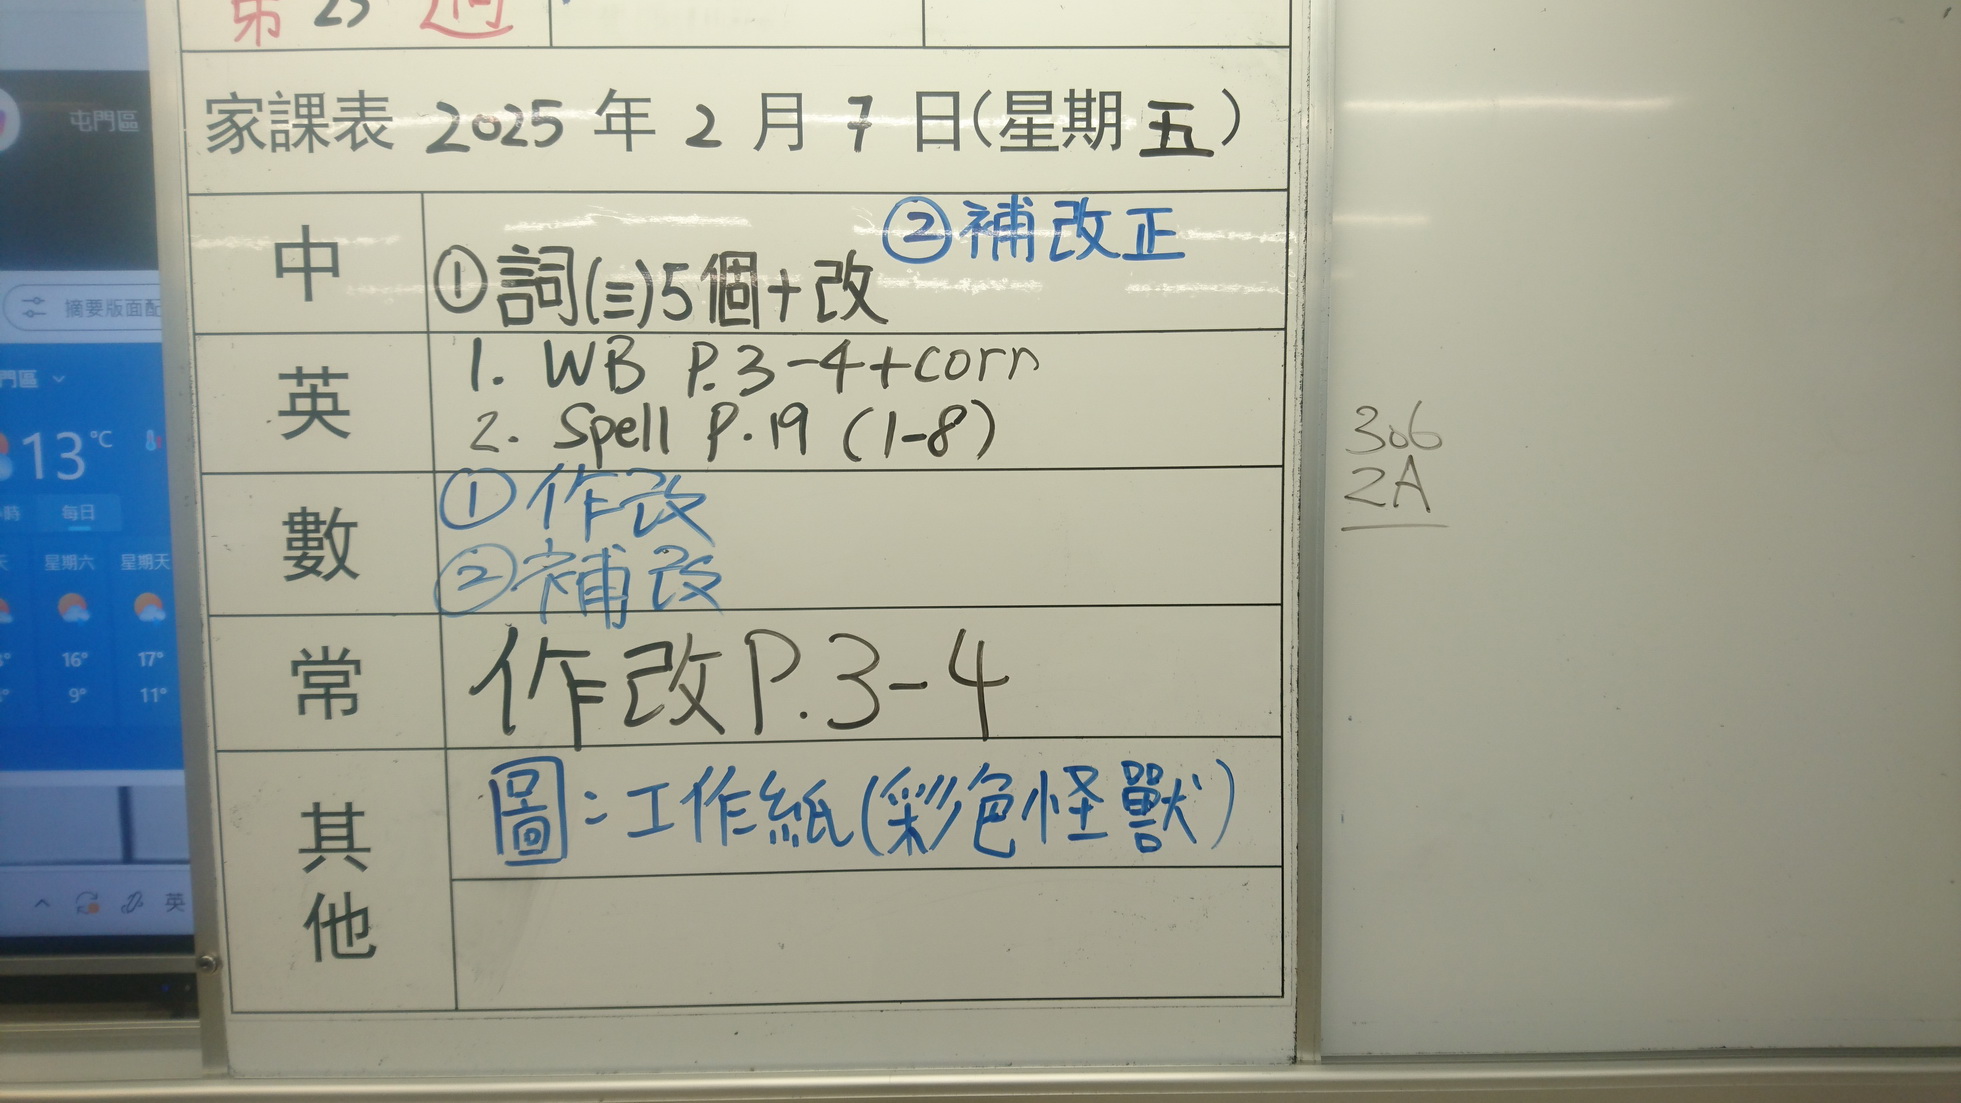 第 23 週
家課表 2025 年 2 月 7 日(星期五)
中
②補改正
①詞(三)5個+改
英
1. WB P.3-4+corr
2. Spell P.19 (1-8)
數
①作改
②補改
常
作改P.3-4
其他
圖:工作紙(彩色怪獸)
306
2A
屯門區
摘要版面配
門區
13°C
時
每日
天
星期六
星期天
16°
17°
9°
11°
英